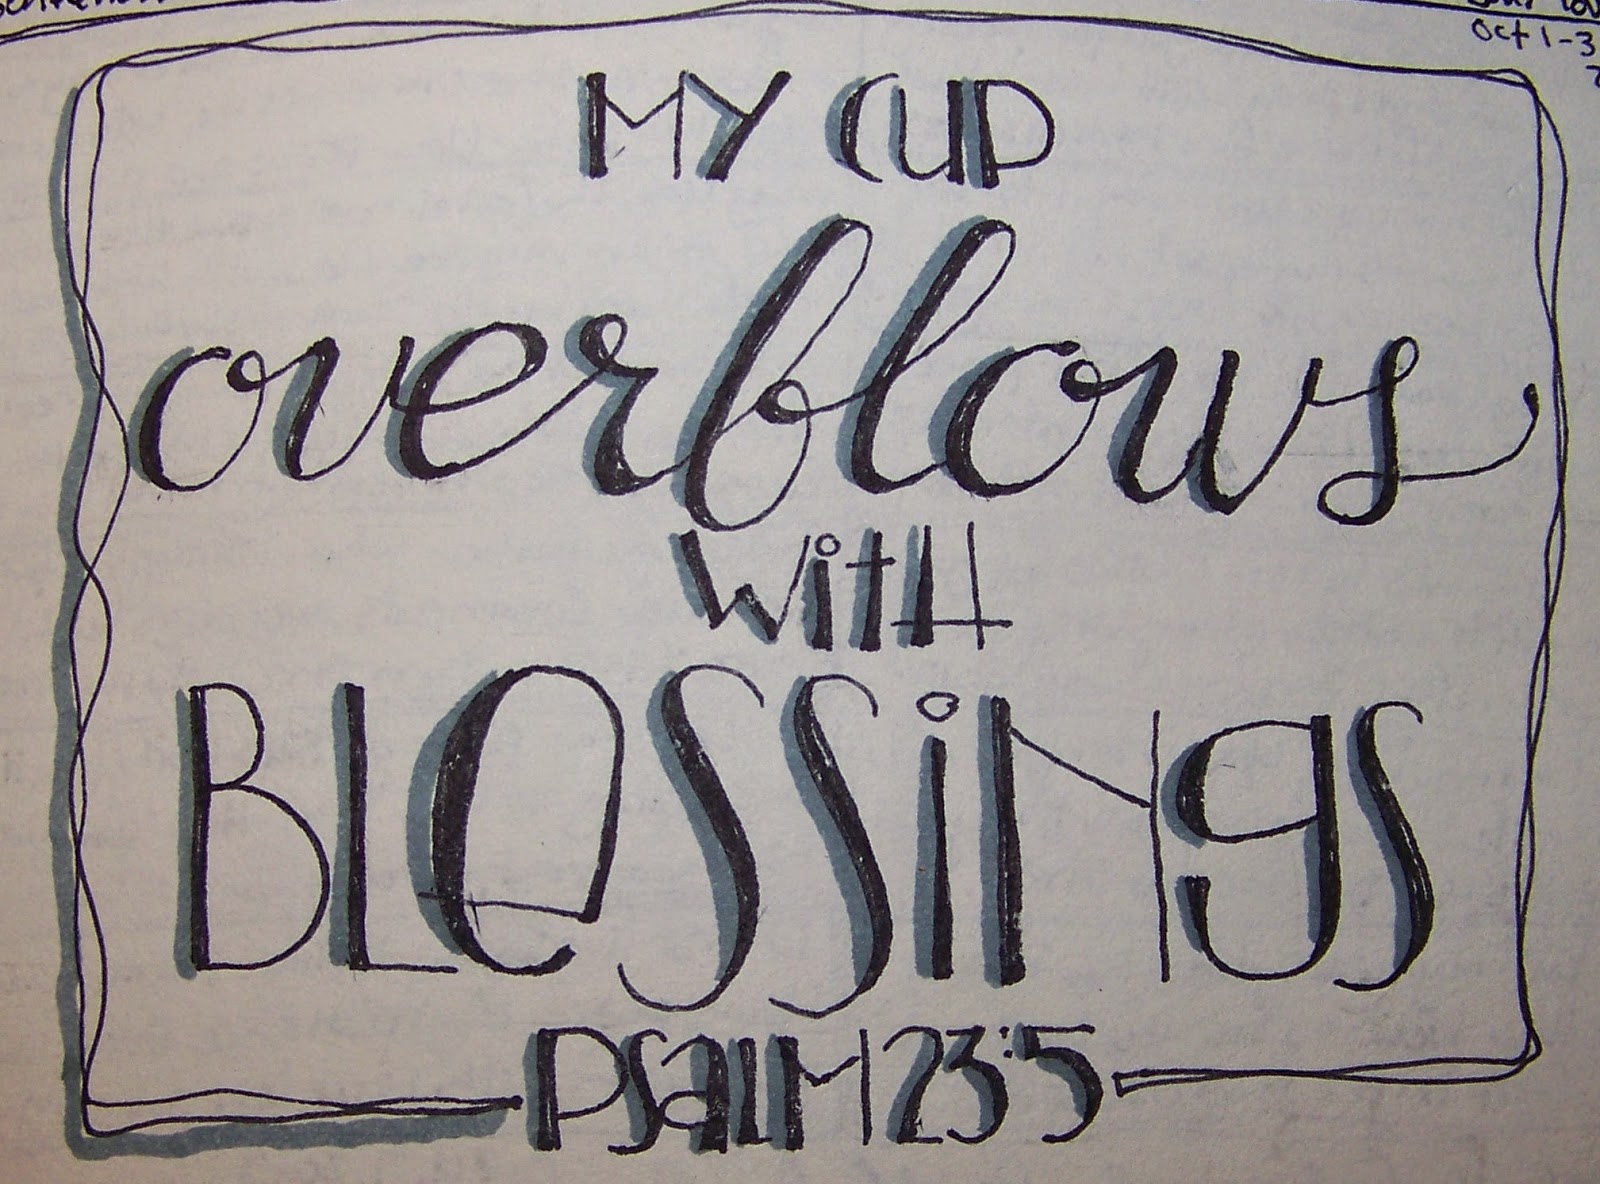 Oct 1-3
MY CUP
overflows
with
BLessiNgs
PSalM 23:5